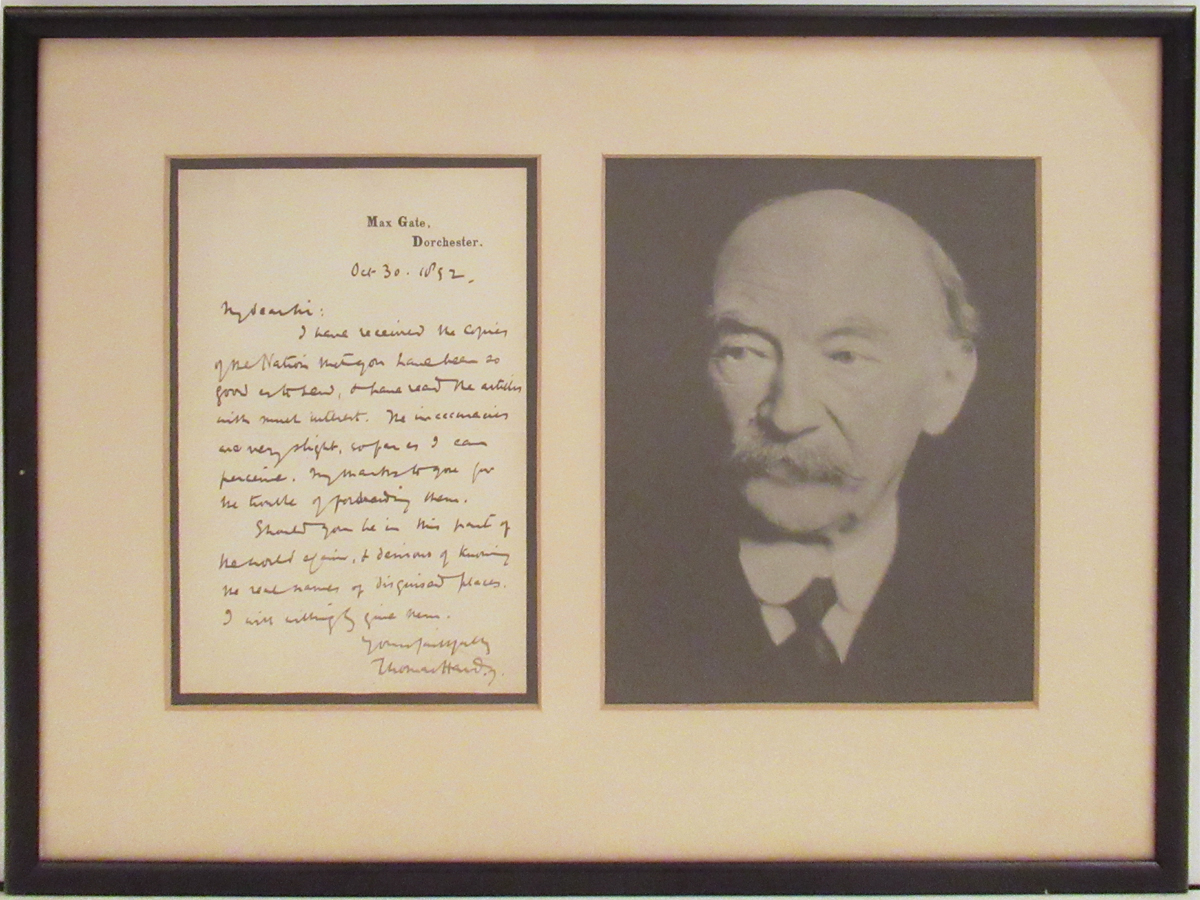 Max Gate,
Dorchester.
Oct 30. 1892.
My dear Sir:
I have received the copies
of the Nation that you have been so
good as to send, & have read the articles
with much interest. The inaccuracies
are very slight, so far as I can
perceive. My thanks to you for
the trouble of forwarding them.
Should you be in this part of
the world again, & desirous of knowing
the real names of disguised places,
I will willingly give them.
Yours faithfully
Thomas Hardy.